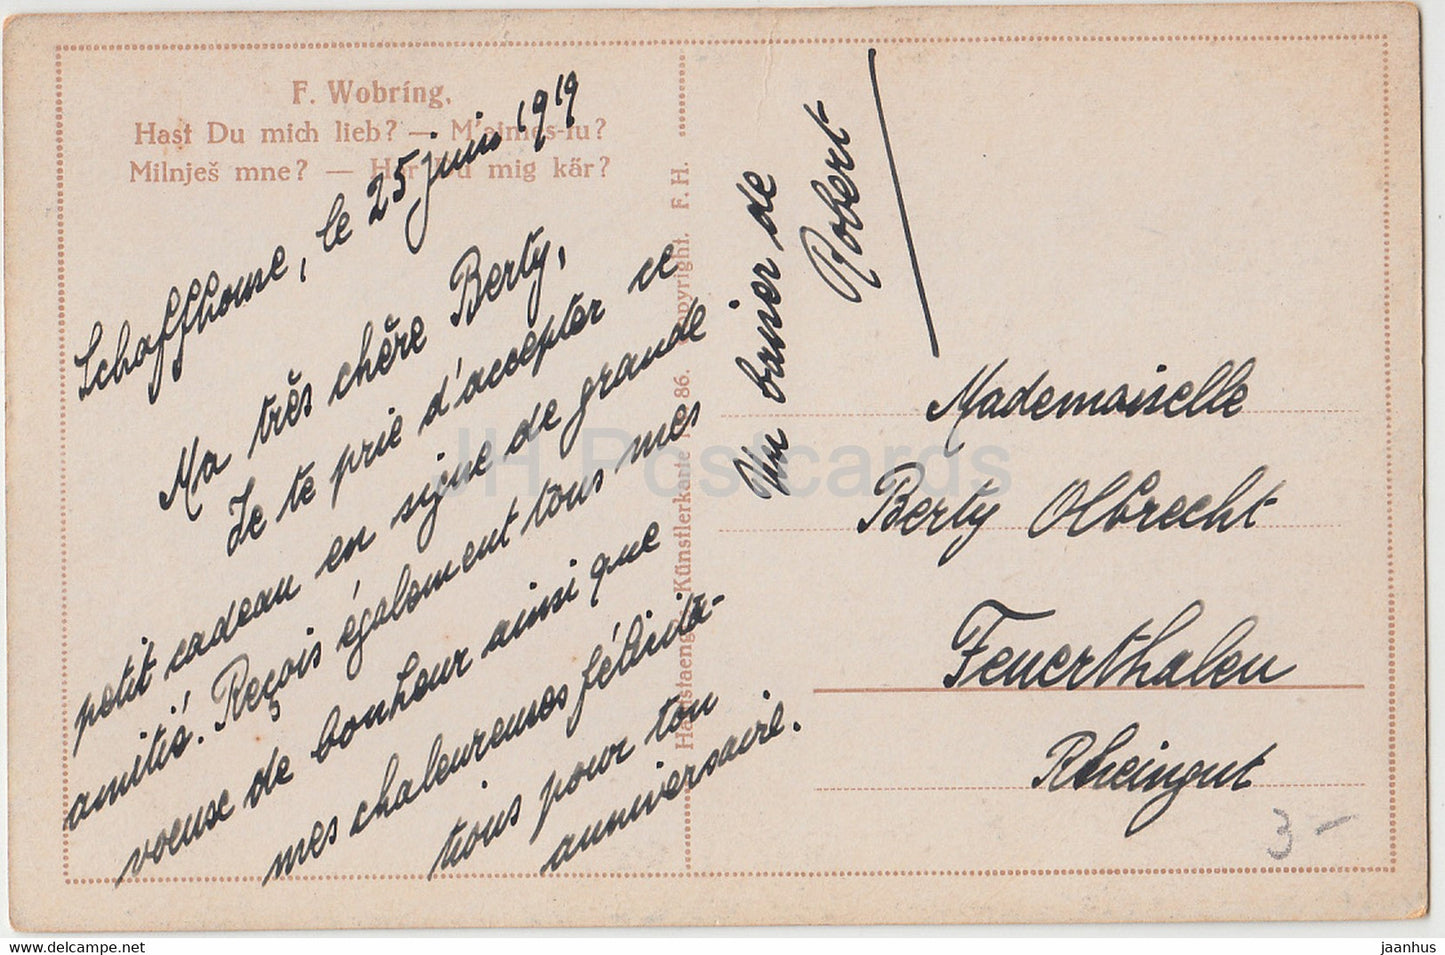 F. Wobring.
Hast Du mich lieb? — M'aimes-tu?
Milnješ mne? — Har Du mig kär?
Schaffhouse, le 25 juin 1919
Ma très chère Berty,
Je te prie d'accepter ce
petit cadeau en signe de grande
amitié. Reçois également tous mes
voeux de bonheur ainsi que
mes chaleureuses félicita-
tions pour ton
anniversaire.
Un baiser de
Robert
Künstlerkarte 86. Copyright. F. H.
Mademoiselle
Berty Olbrecht
Feuerthalen
Rheingut
3 –
JH Postcards
jaanhus